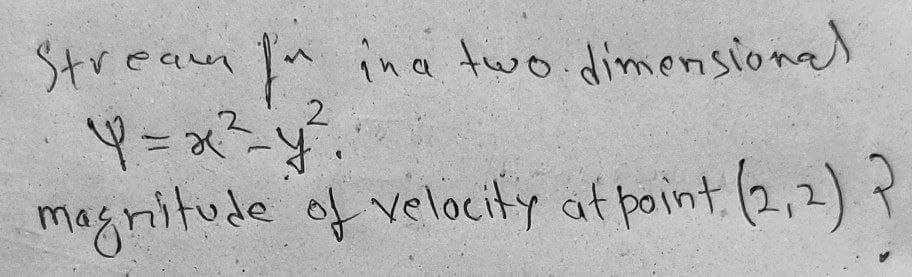 Stream fn in a two dimensional
ψ = x² - y².
magnitude of velocity at point (2,2) ?